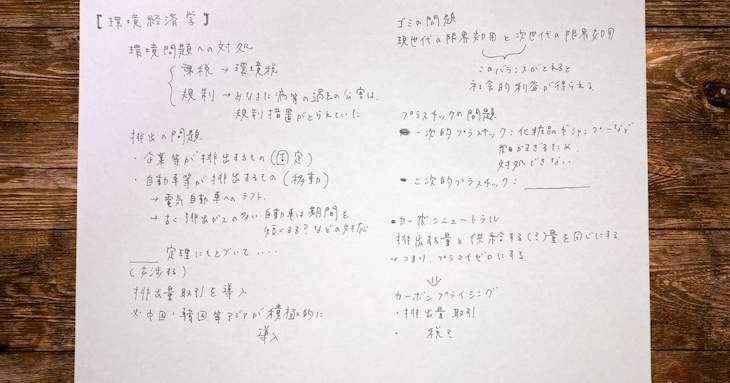 【環境経済学】
環境問題への対処
課税 → 環境税
規制 → みなまた病等の過去の公害は、
規制措置がとられていた
排出の問題
・企業等が排出するもの(固定)
・自動車等が排出するもの(移動)
→ 電気自動車へのシフト.
→ 古く排出ガスの多い自動車は期間を
短くする?などの対応
____定理にもとづいて....
(交渉する)
排出量取引を導入
※中国・韓国等アジアが積極的に
導入
ゴミの問題
現世代の限界効用と次世代の限界効用
このバランスがとれると
社会的利益が得られる
プラスチックの問題
・一次的プラスチック:化粧品やシャンプーなど
細かすぎるため
対処できない
・二次的プラスチック:________
・カーボンニュートラル
排出する量と供給する(?)量を同じにする
→ つまり、プラマイゼロにする
⇓
カーボンプライシング
・排出量取引
・ 税?